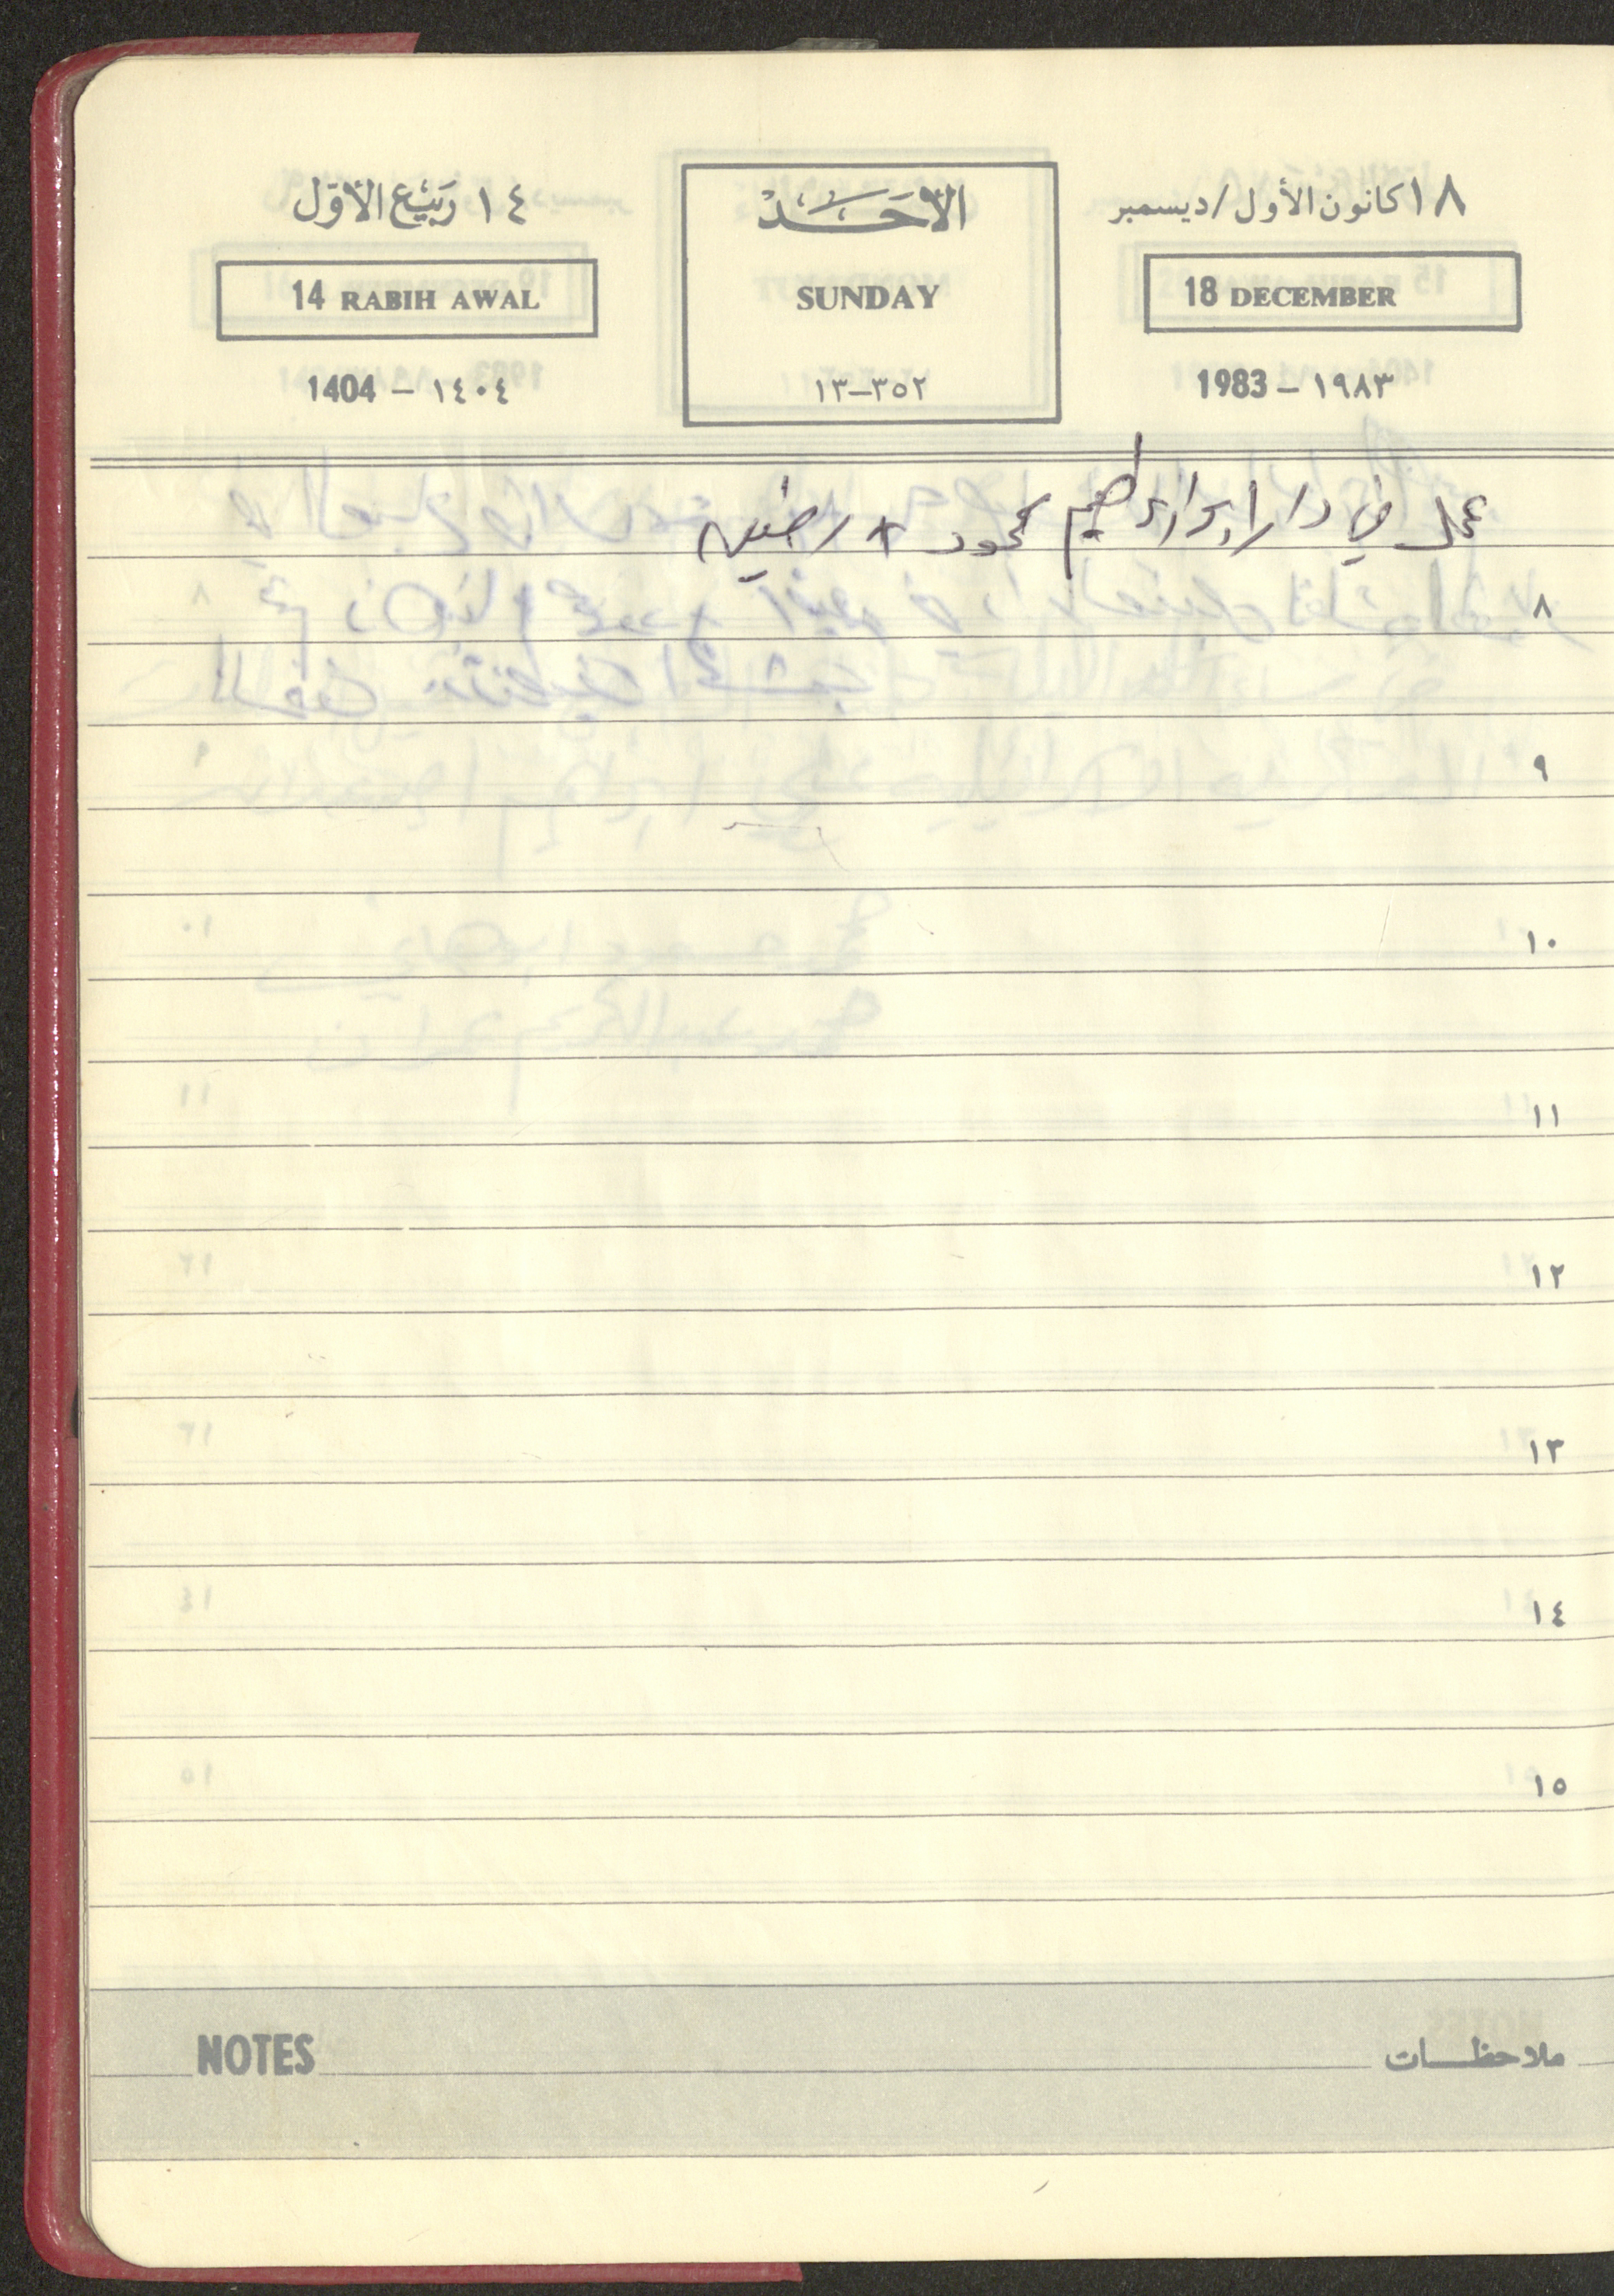 ١٨ كانون الأول / ديسمبر
الأحَد
١٤ ربيع الأول
18 DECEMBER
SUNDAY
14 RABIH AWAL
1983 – ١٩٨٣
١٣–٣٥٢
1404 – ١٤٠٤
عمل في دار ابراهيم محمود +
٨
٩
١٠
١١
١٢
١٣
١٤
١٥
ملاحظات
NOTES